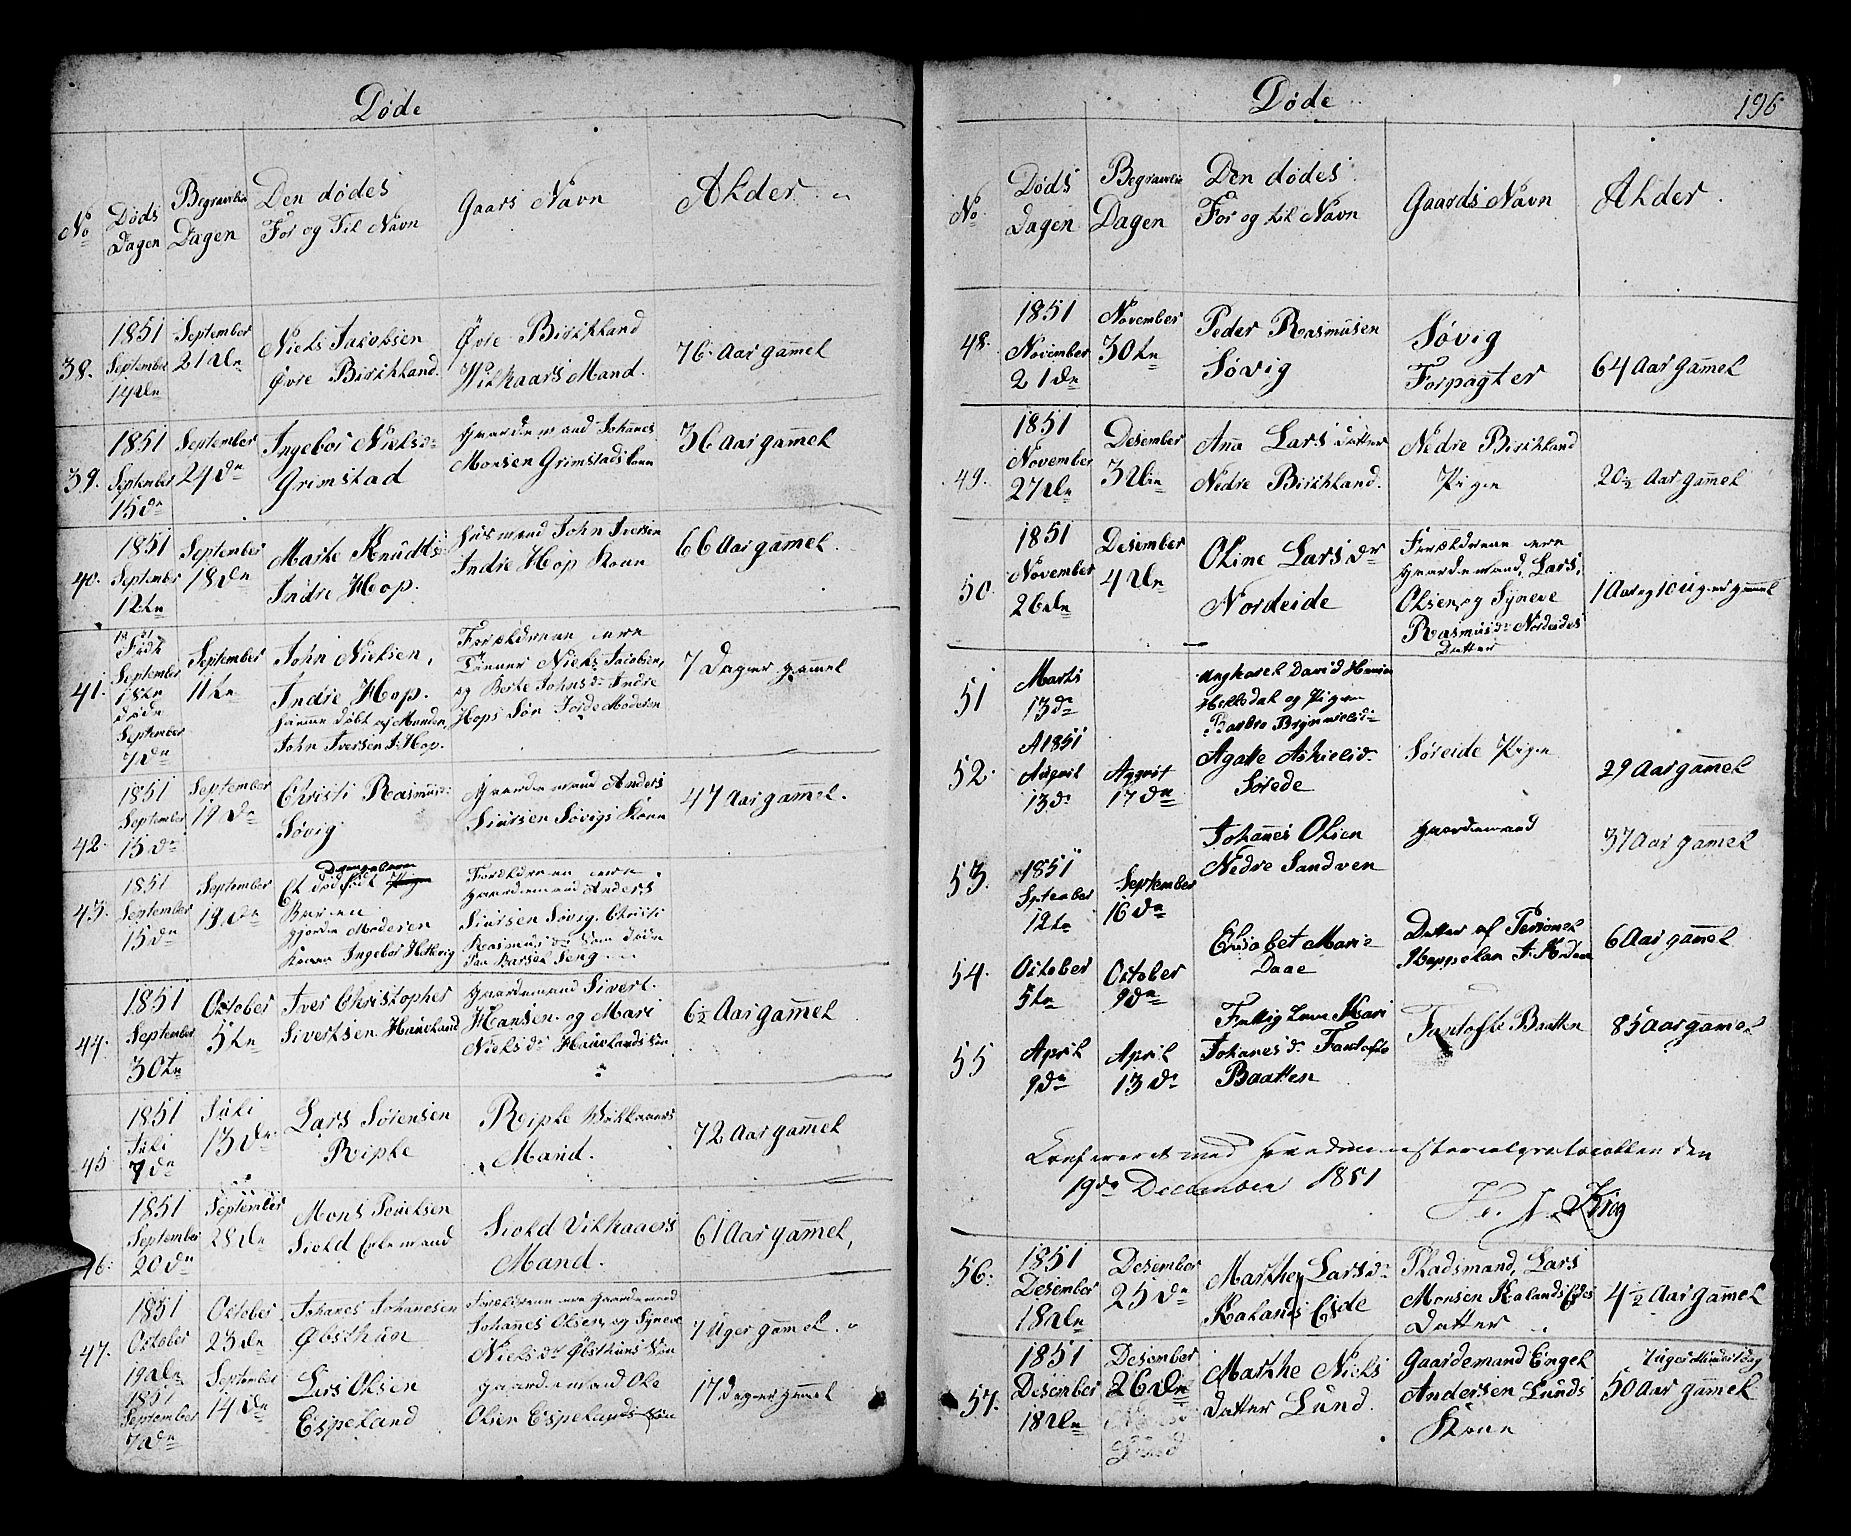 Døde
No
Døds
Dagen
Begravelse
Dagen
Den dødes
For og Til Navn
Gaars Navn
Alder
38.
1851
September
14de
September
21de
Niels Jacobsen
Øvre Birkland
Øvre Birkland
Vilkaars Mand.
76 Aar gammel
39.
1851
September
15de
September
24de
Ingebor Nielsdr
Grimstad
Gaardemand Johannes
Monsen Grimstads kone
36 Aar gammel
40.
1851
September
12te
September
18de
Marte Knudtsdr
Indre Hop.
Husmand John Iversen
Indre Hop Kone
66 Aar gammel.
41.
1851
Født
September
1ste
døde
September
7de
September
11te
John Nielsen,
Indre Hop.
hjemme døbt af Manden
John Iversen I. Hop.
Forældrene ere
Tjener Niels Jacobsen,
og Berte Johnsdr Indre
Hops Søn Jorde Moderen
7 Dager gammel
42.
1851
September
15de
September
19de
Christi Rasmusdr
Søvig
Gaardemand Anders
Siursen Søvigs Kone
47 Aar gammel.
43.
1851
September
15de
September
19de
Et dødfødt Pige
Drengebarn
Barnen
gjorde Moderen
Konen Ingebor Helevig
Forældrene ere
Gaardemand Anders
Siursen Søvig. Christi
Rasmusdr som døde
paa Barsel Seng
44.
1851
September
30te
October
5te
Iver Christopher
Sivertsen Haueland
Gaardemand Sivert
Hansen og Mari
Nielsdr Hauelands Søn
6½ Aar gammel
45
1851
Juli
7de
Juli
13de
Lars Sørensen
Riple
Riple Vilkaars
Mand.
72 Aar gammel
46.
1851
September
20de
September
28de
Mons Poulsen
Siold Enkemand
Siold Vilkaars
Mand.
61 Aar gammel,
47.
1851
October
19de
October
23de
Johanes Johanesen
Øbsthun
Forældrene ere Gaardemand
Johannes Olsen, og Syneve
Nielsdr Øbsthuns Søn
7 Uger gammel.
1851
September
7de
September
14de
Lars Olsen
Espeland
Gaardemand Ole
Olsen Espelands Søn
17 Dager gammel
Døde
196
No
Døds
Dagen
Begravelse
Dagen
Den dødes
For og til Navn
Gaards Navn
Alder
48.
1851
November
21de
November
30te
Peder Rasmusen
Søvig
Søvig
Forpagter
64 Aar gammel
49.
1851
November
27de
Desember
3die
Ana Lars datter
Nedre Birkland.
Nedre Birkland
Pige
20½ Aar gammel
50.
1851
November
26de
Desember
4de
Oline Larsdr
Nordeide
Forældrene ere
Gaardemand, Lars,
Olsen og Syneve
Rasmusdr Nordeides
Datter
1 Aar og 10 uger gammel
51
Marts
13de
Ungkarl David Hansen
Heldal og Pigen
Barbro Brynnielsdr
52.
A 1851
August
13de
August
17de
Agate Askielsdr
Sørede
Søreide Pige
29 Aar gammel
53.
1851
September
12te
September
16de
Johannes Olsen
Nedre Sandven
Gaardemand
37 Aar gammel
54.
October
5te
October
9de
Elisabet Marie
Daae
Datter af Personel
Kappelan
6 Aar gammel
55
April
9de
April
13de
Fattig Lem Mari
Johanesdr Fantofte
Baatten
Fantofte Baatten
85 Aar gamel
Confereret med Hovedministerialprotocollen den
19de December 1851
Krog
56.
1851
Desember
18de
Desember
25de
Marthe Larsdr
Kalands Eide
Pladsmand, Lars
Monsen Kalands Eides
Datter
4½ Aar gammel
57.
1851
Desember
18de
Desember
26de
Marthe Niels
datter Lund.
Gaardemand Engel
Andersen Lunds
Kone
7 uger Mindst dog
50 Aar gammel